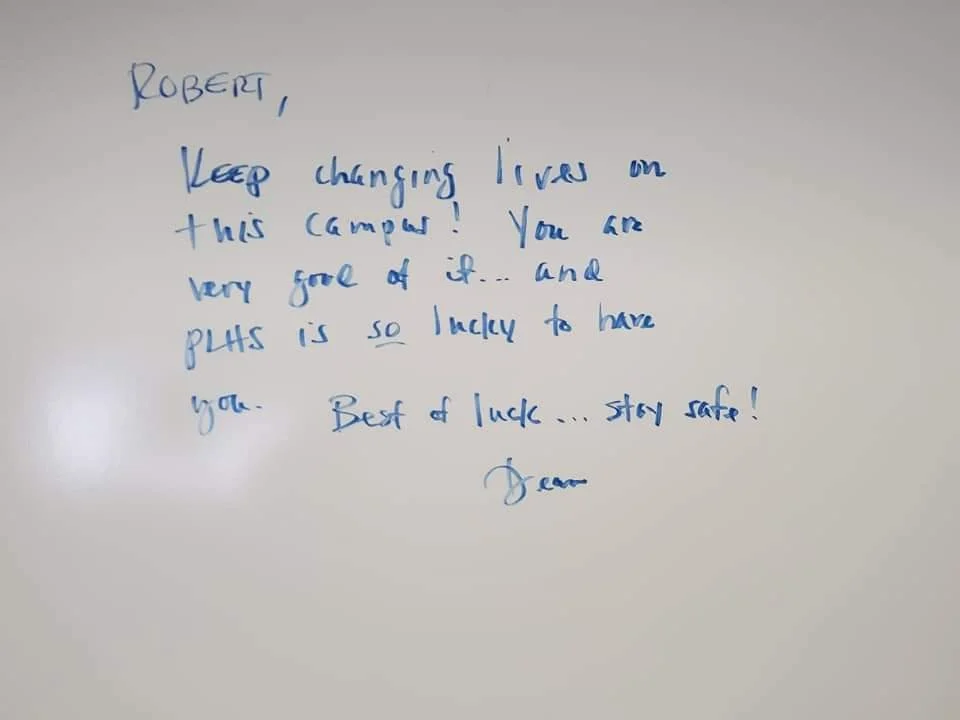 ROBERT,
KEEP changing lives on
this campus! You are
very good at it... and
PLHS is so lucky to have
you. Best of luck... stay safe!
Dean